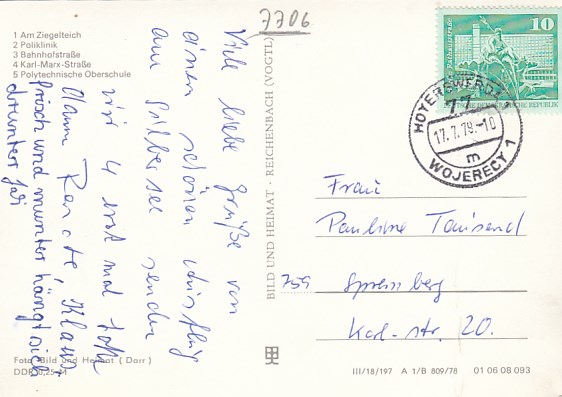 7706
1 Am Ziegelteich
2 Poliklinik
3 Bahnhofstraße
4 Karl-Marx-Straße
5 Polytechnische Oberschule
Viele liebe Grüße von
einem schönen Ausflug
am Silbersee senden
wir 4
Hann Klaus,
frisch und munter hängt sich
drunter
BILD UND HEIMAT · REICHENBACH (VOGTL)
10
DEUTSCHE DEMOKRATISCHE REPUBLIK
HOYERSWERDA 1
77
17.7.79.-10
m
WOJERECY 1
Frau
Pauline Tausend
759 Spremberg
Karl- str. 20.
Foto: Bild und Heimat (Darr)
DDR 0,25 M
III/18/197 A 1/B 809/78 01 06 08 093